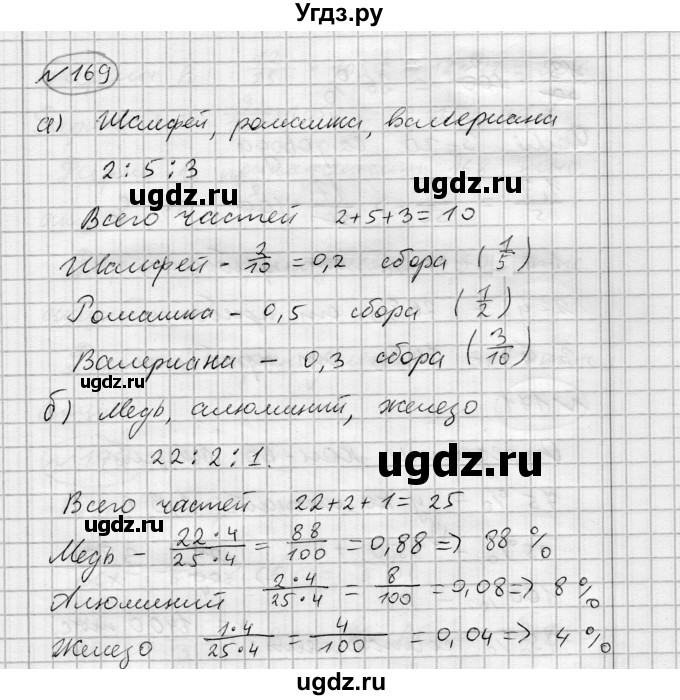 Угдз.ру
№169
а) Шалфей, ромашка, валериана
2 : 5 : 3
ugdz.ru ugdz.ru
Всего частей 2+5+3=10
Шалфей - 2/10 = 0,2 сбора (1/5)
Ромашка - 0,5 сбора (1/2)
Валериана - 0,3 сбора (3/10)
ugdz.ru
б) Медь, алюминий, железо
22 : 2 : 1.
ugdz.ru
Всего частей 22+2+1= 25
ugdz.ru
Медь - 22·4/25·4 = 88/100 = 0,88 => 88 %
Алюминий 2·4/25·4 = 8/100 = 0,08 => 8 %
Железо 1·4/25·4 = 4/100 = 0,04 => 4 %
ugdz.ru ugdz.ru
Угдз.ру